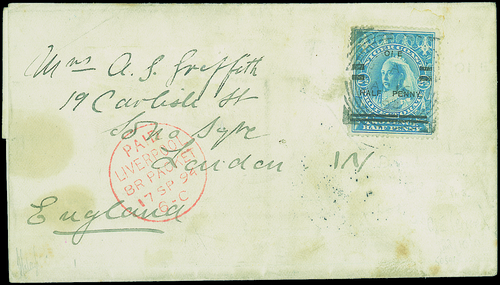 Mrs A. S. Griffith
19 Carlisle St
Soho Sqre
London W
England
PAID
LIVERPOOL
BR PACKET
17 SP
6-C
HALF PENNY
HALF PENNY